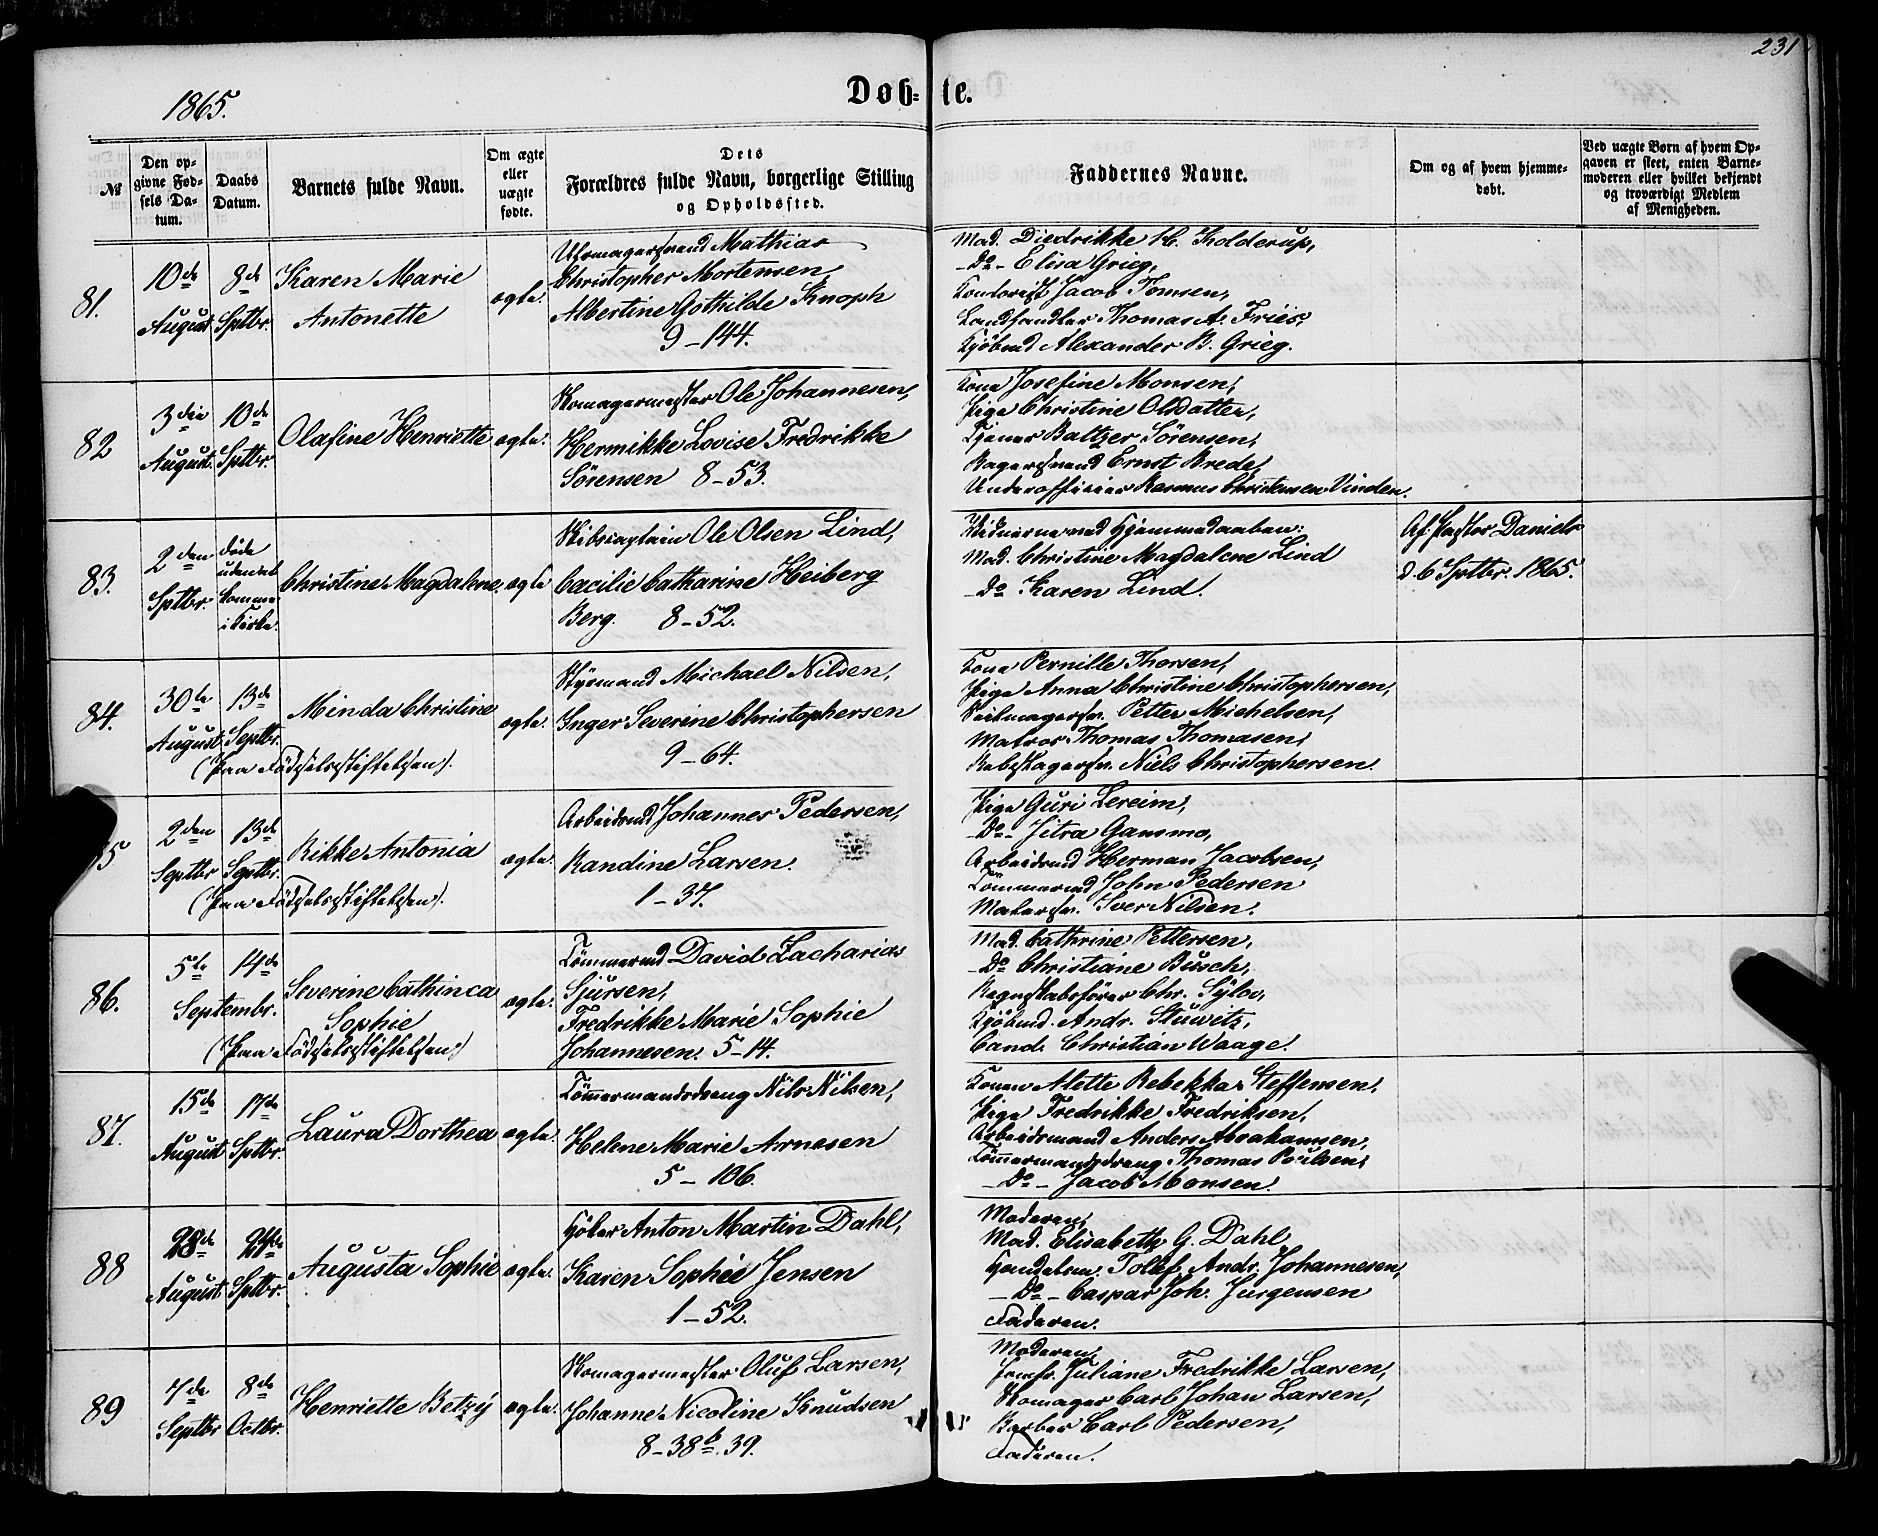 231
1865.
Døb-
te.
№
Den op-
givne Fød-
sels Da-
tum.
Daabs
Datum.
Barnets fulde Navn.
Om ægte
eller
uægte
fødte.
Dets
Forældres fulde Navn, borgerlige Stilling
og Opholdssted.
Faddernes Navne.
Om og af hvem hjemme-
døbt.
Ved uægte Børn af hvem Op-
gaven er skeet, enten Barne-
moderen eller hvilket bekjendt
og troværdigt Medlem
af Menigheden.
81.
10de
August
8de
Sptbr.
Karen Marie
Antonette
ægte.
Uhrmagersvend Mathias
Christopher Mortensen,
Albertine Gothilde Knoph
9-144.
Mad. Diedrikke H. Kolderup,
-Do- Elisa Grieg,
Contorist Jacob Tomsen,
Landhandler Thomas A. Friis,
Kjøbmd Alexander B. Grieg.
82
3die
August.
10de
Sptbr.
Olafine Henriette
ægte.
Skomagermester Ole Johannesen,
Hermikke Lovise Fredrikke
Sörensen 8-53.
Kone Josefine Monsen,
Pige Christine Olsdatter,
Tjener Baltzer Sörensen,
Bagersvend Ernst Brede,
Underofficier Rasmus Christensen Vinden.
83.
2den
Sptbr.
døde
uden at
komme
i Kirke.
Christine Magdalene.
ægte
Skibscaptain Ole Olsen Lind,
Cacilie Catharine Heiberg
Berg. 8-52.
Vidnerne ved Hjemmedaaben:
Mad. Christine Magdalene Lind
-Do Karen Lind.
Af Pastor Daniels
d. 6 Sptbr. 1865.
84.
30te
August.
13de
Septbr.
Minda Christine
(Paa Födselsstiftelsen).
ægte.
Styrmand Michael Nilsen,
Inger Severine Christophersen
9-64.
Kone Pernille Thorsen,
Pige Anna Christine Christophersen,
Seilmagersv. Petter Michelsen,
Matros Thomas Thomasen,
Rebslagersv. Niels Christophersen.
5
2den
Septbr
13de
Septbr.
Rikke Antonia
(Paa Födselsstiftelsen).
ægte.
Arbeidsmd Johannes Pedersen,
Randine Larsen.
1-37.
Pige Guri Lereim,
-Do- Jitra Gammo,
Arbeidsmd Herman Jacobsen,
Tömmermd John Pedersen
Malersv. Iver Nilsen.
86.
5te
14de
Septembr.
Severine Cathinca
Sophie
(Paa Födselsstiftelsen)
ægte.
Tömmermd David Zacharias
Sjursen,
Fredrikke Marie Sophie
Johannesen. 5-14.
Mad. Cathrine Pettersen,
-Do Christiane Busch,
Regnskabsförer Chr. Sylov,
Kjöbmd. Andr. Stuwitz,
Cand. Christian Waage.
87.
15de
August
17de
Sptbr.
Laura Dorthea
ægte.
Tömmermandsdreng Nils Nilsen,
Helene Marie Arnesen
5-106.
Konen Alette Rebekka Steffensen,
Pige Fredrikke Fredriksen,
Arbeidsmand Anders Abrahamsen,
Tömmermandsdreng Thomas Poulsen,
-Do- Jacob Monsen.
88
28de
August.
24de
Sptbr.
Augusta Sophie
ægte.
Höker Anton Martin Dahl,
Karen Sophie Jensen
1-52.
Moderen,
Mad. Elisabeth G. Dahl
Handelsm. Tollef Andr. Johannesen,
-Do- Caspar Joh. Jurgensen
Faderen.
89
7de
Septbr
8de
Octbr.
Henriette Betzy
ægte.
Skomagermester Oluf Larsen,
Johanne Nicoline Knudsen
8-38b.39.
Moderen,
Jomfr. Juliane Fredrikke Larsen,
Skomager Carl Johan Larsen,
Barber Carl Pedersen,
Faderen.